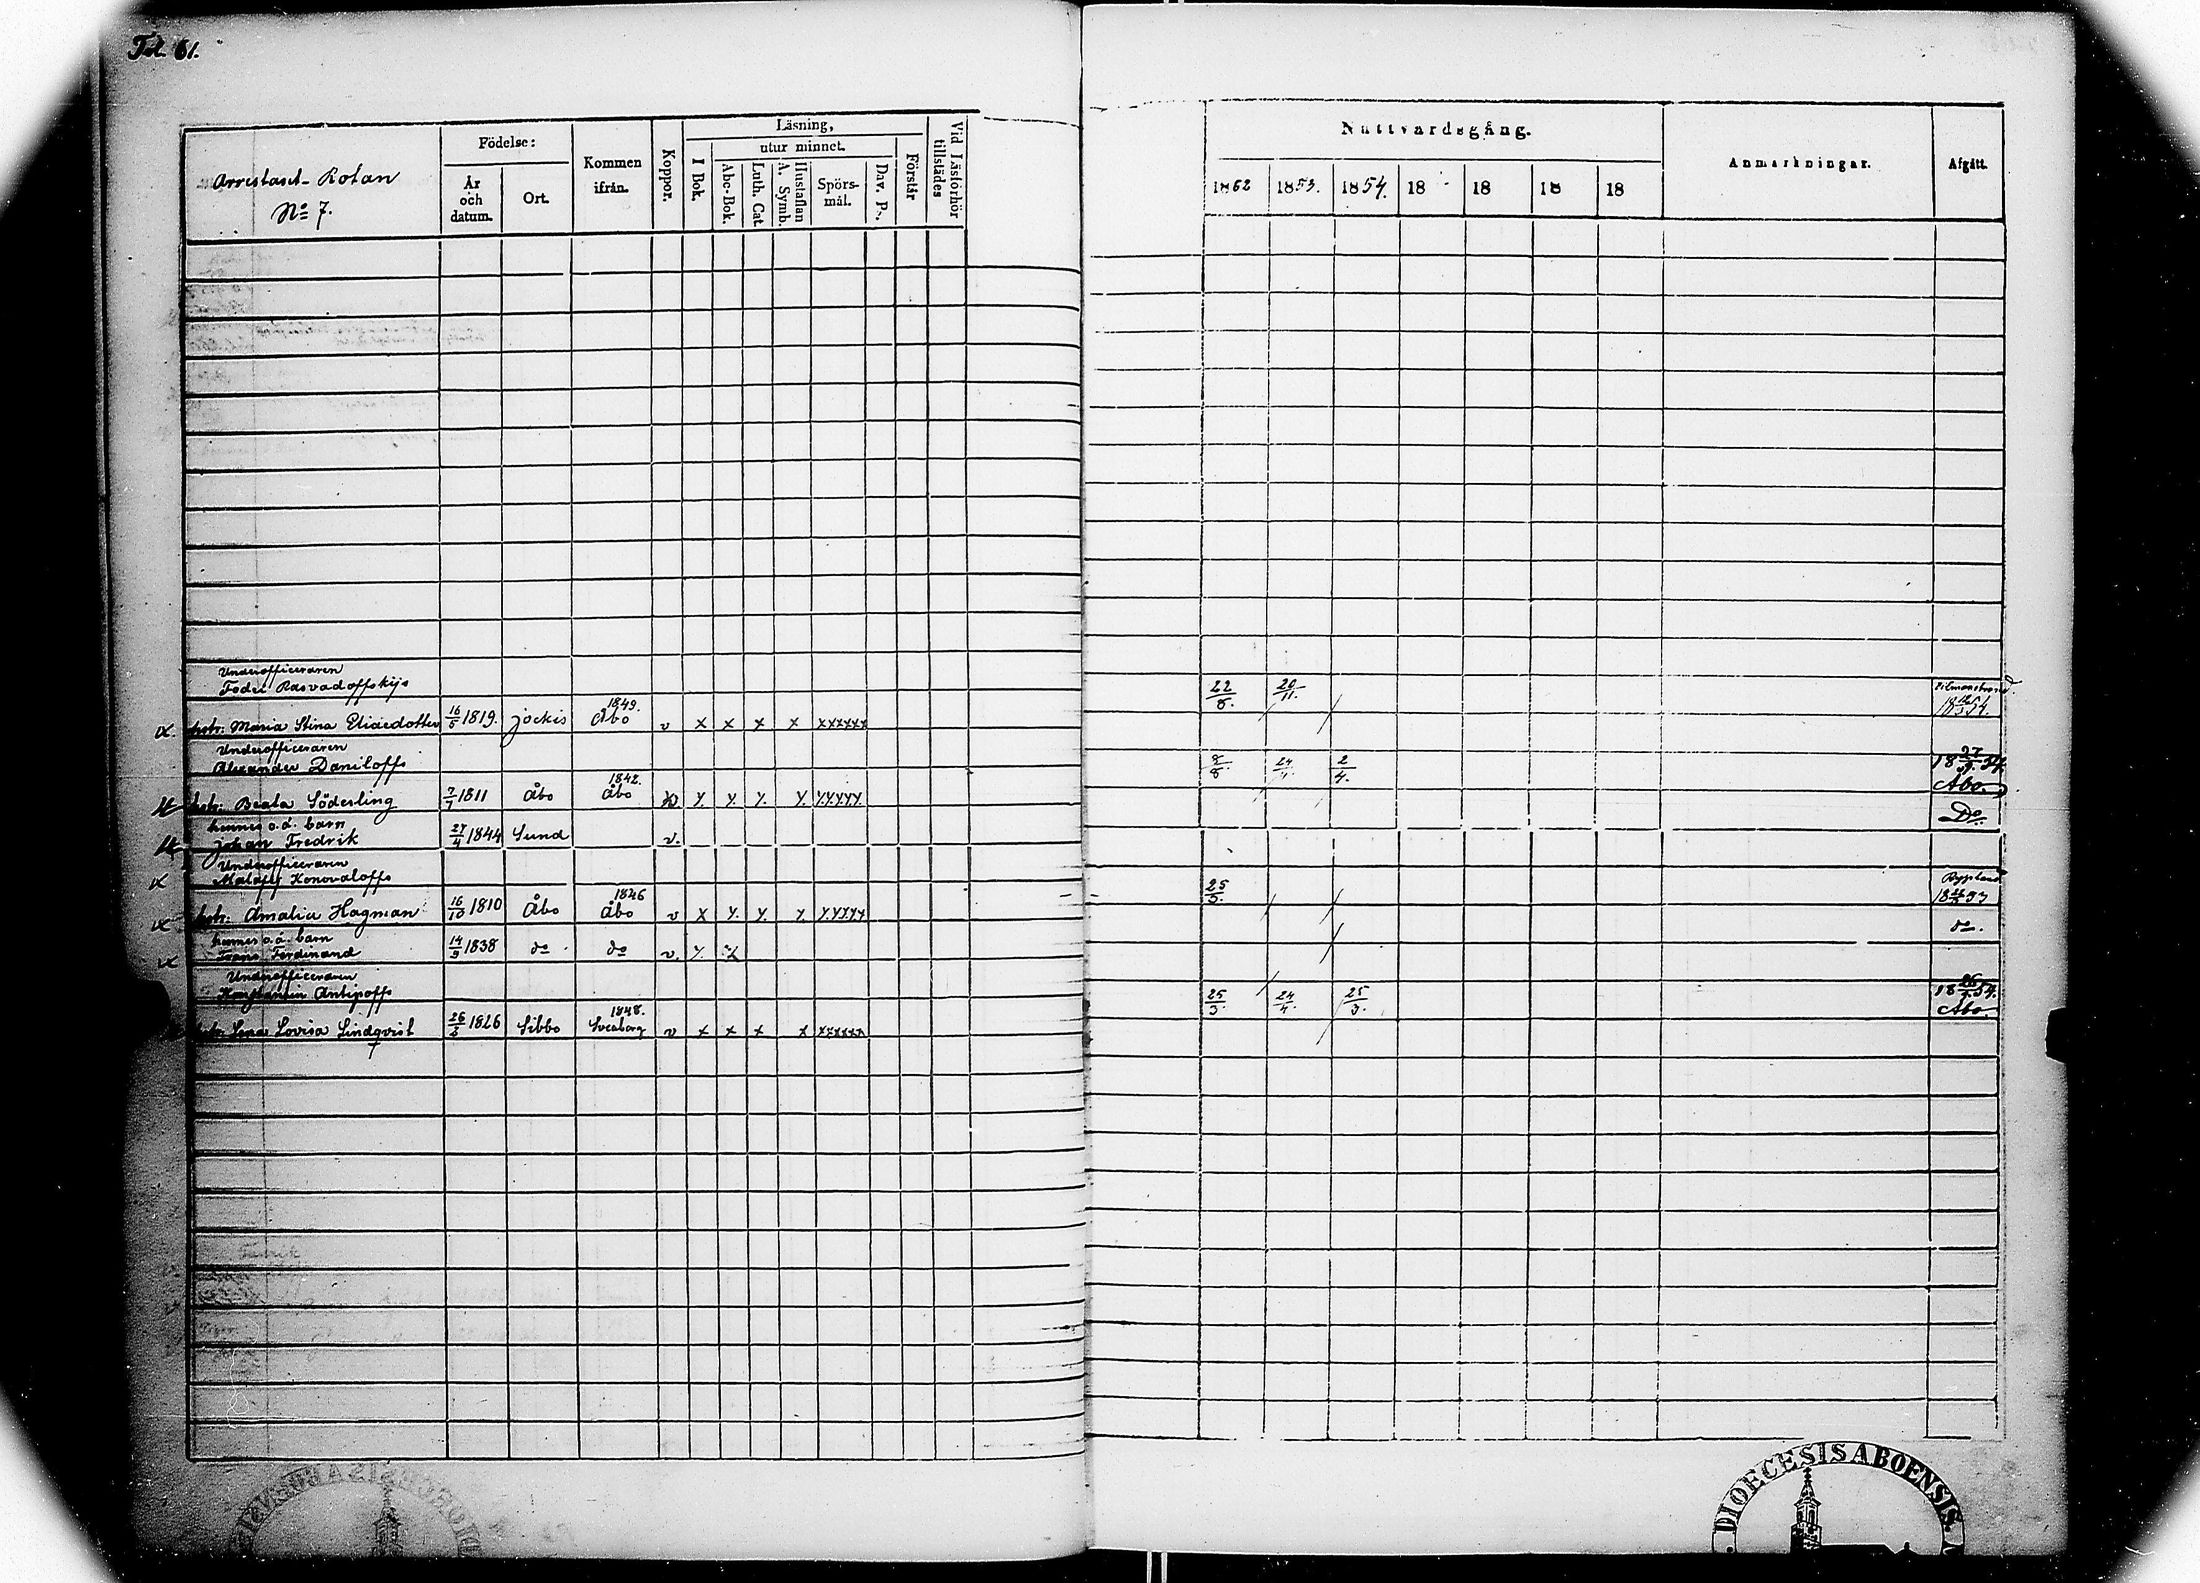 Fol. 61.
Arrestant-Rotan
No 7.
Födelse:
År och datum.
Ort.
Kommen ifrån.
Koppor.
Läsning,
utur minnet.
I Bok.
Abc-Bok.
Luth. Cat.
Hustaflan A. Symb.
Spörsmål.
Dav. Ps.
Förstår
Vid Läsförhör tillstädes
Nattvardsgång.
1852 1853. 1854. 18 18 18 18
Anmärkningar.
Afgått.
Underofficeraren
Fodei Rasvadoffskijs 22/8. 20/11.
hstr: Maria Stina Eliaedotter 16/5 1819. Jockis 1849. Åbo v x x x x xxxxxx 1854.
Underofficeraren
Alexander Daniloffs 8/8 24/4. 2/4. 18 27/9. 54
hstr: Beata Söderling 7/7 1811 Åbo 1842. Åbo Y. Y. Y. Y. Y.Y.Y.Y.Y. Åbo.
hennes o.ä. barn
Johan Fredrik 27/4 1844 Sund v. Do
Underofficeraren
Konovaloffs 25/5.
hstr: Amalia Hagman 16/10 1810 Åbo 1846 Åbo v X Y. Y. Y. Y.Y.Y.Y.Y 1853
hennes o.ä. barn
Frans Ferdinand 14/9 1838 do do v. Y. do.
Underofficeraren
Konstantin Antipoffs 25/3. 24/4. 25/3. 1854.
hstr: Lena Lovisa Lindqvist 1826 Sibbo 1848. Sveaborg v x x x x xxxxxx Åbo.
DIOECESIS ABOENSIS.